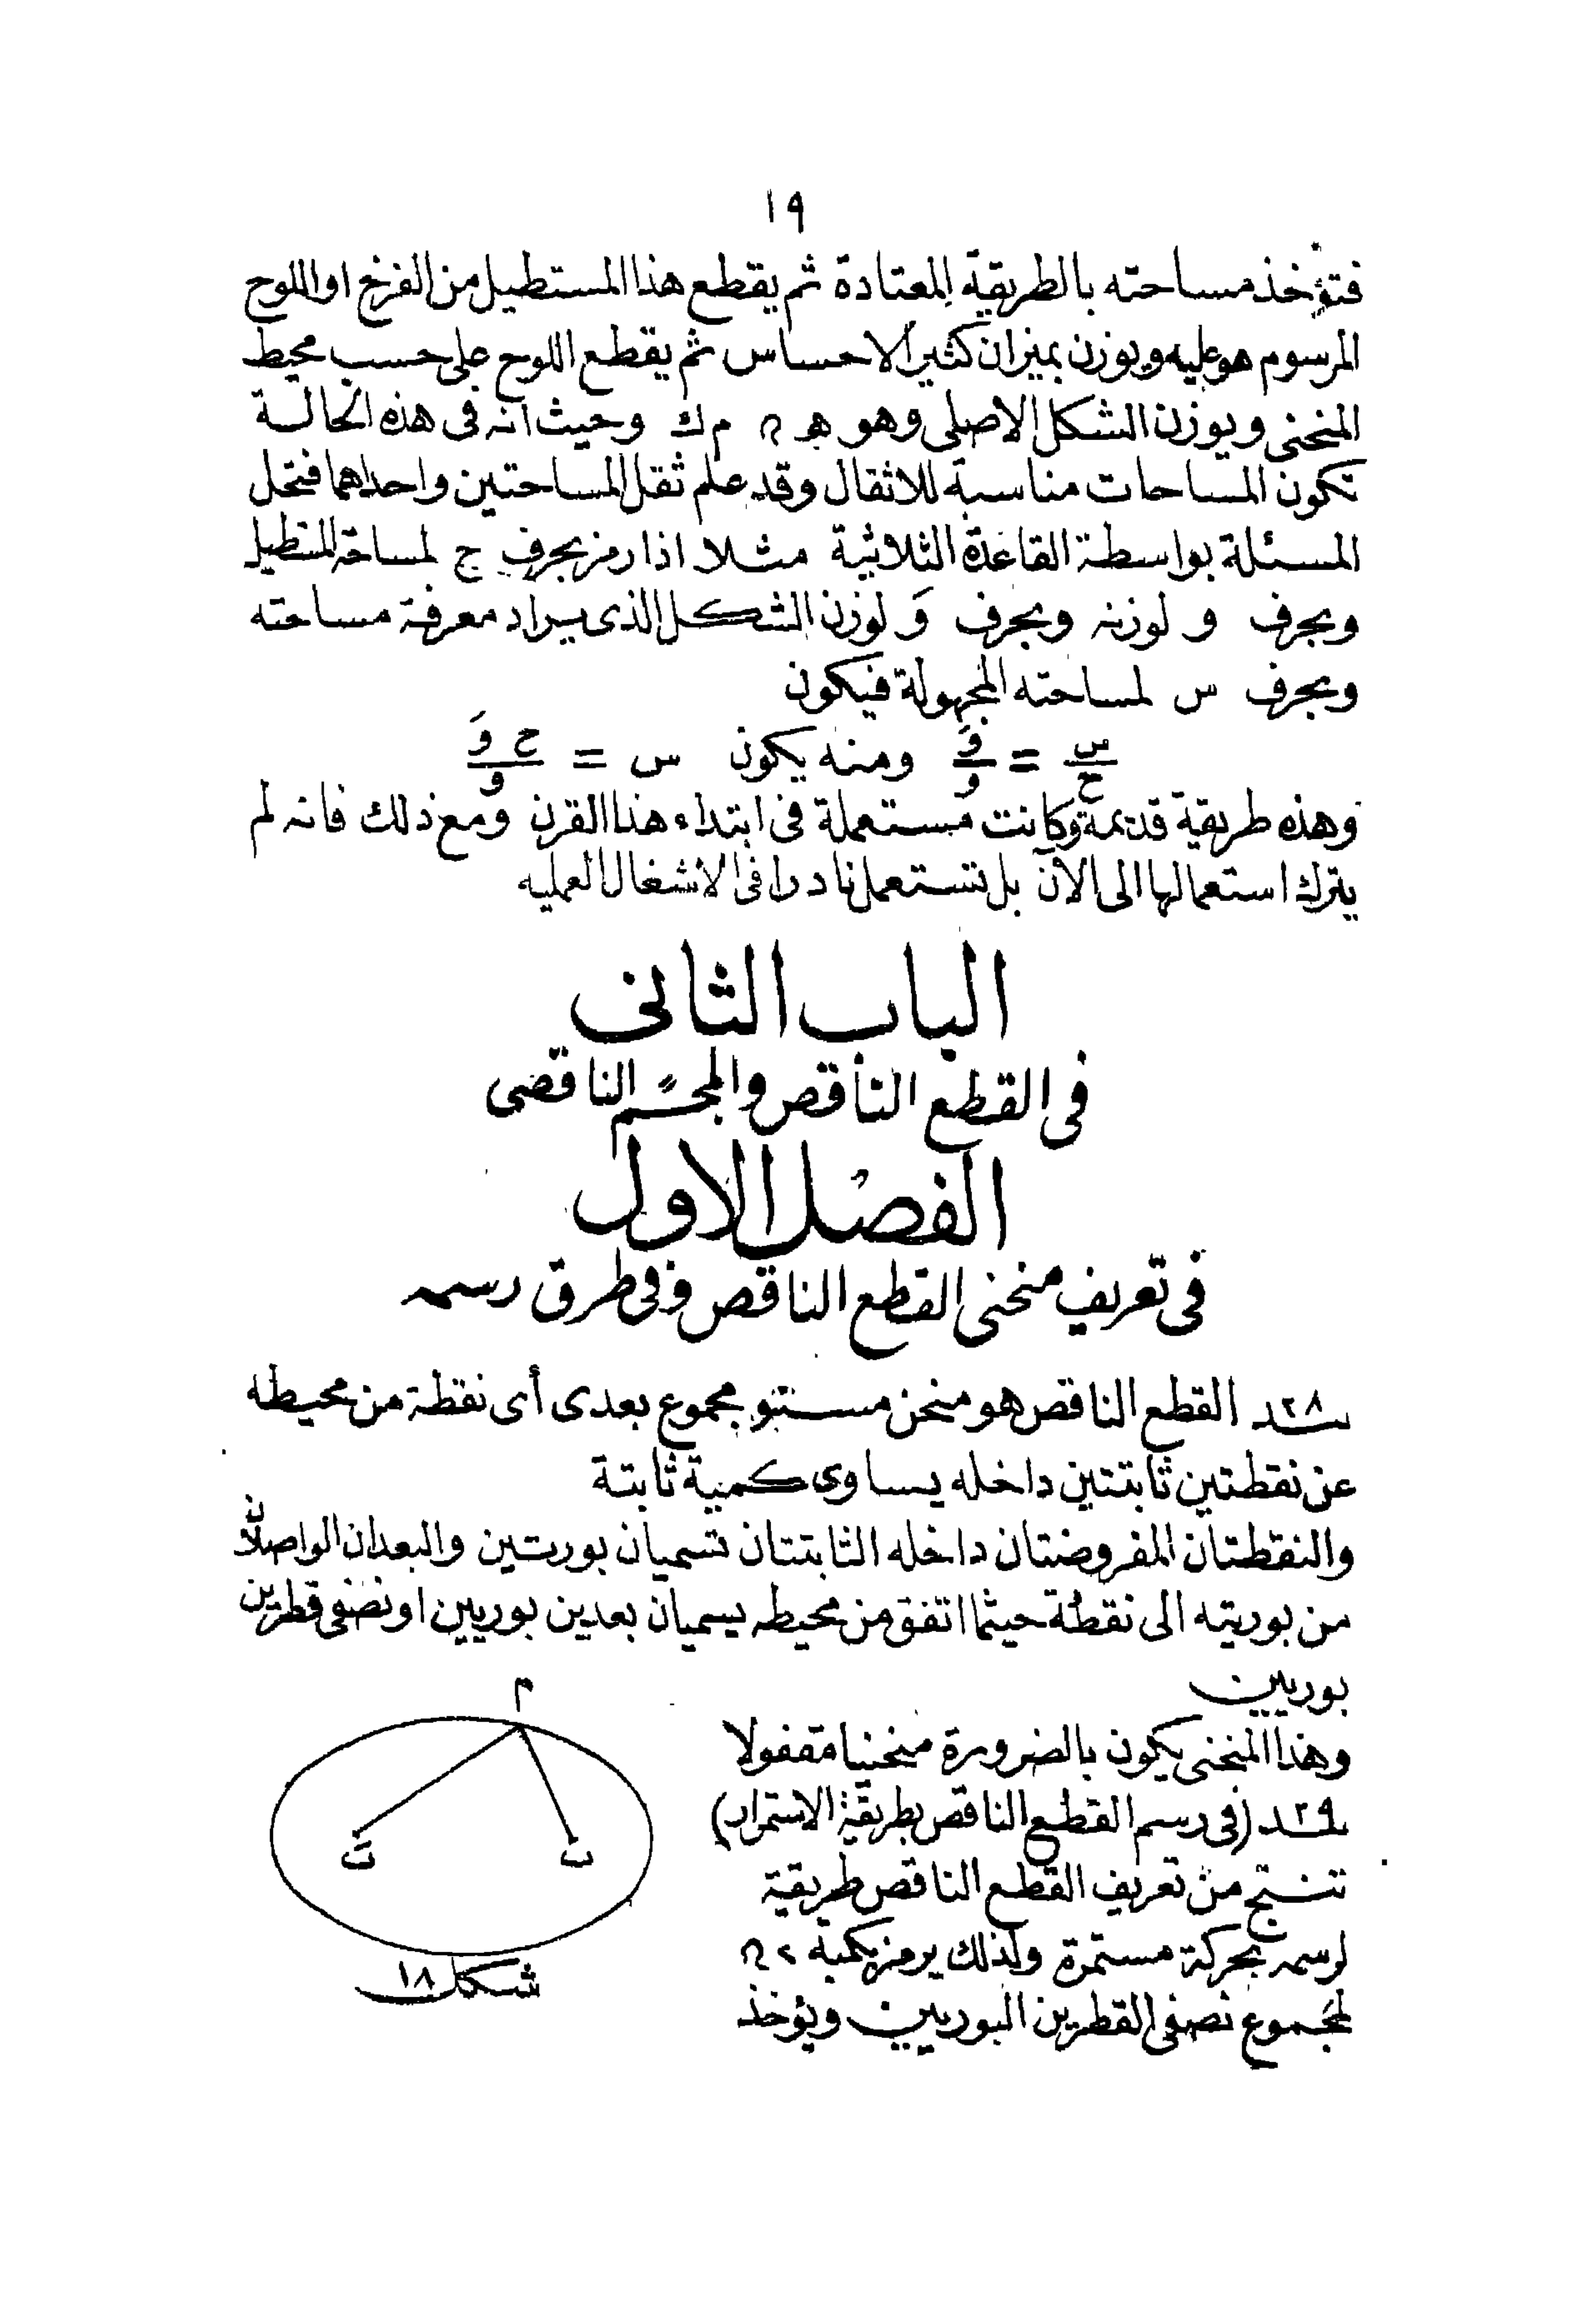 ١٩
فتؤخذ مساحته بالطريقة المعتادة ثم يقطع هذا المستطيل من الفرخ او اللوح
المرسوم هو عليه ويوزن بميزان كثير الاحساس ثم يقطع اللوح على حسب محيط
المنحنى ويوزن الشكل الاصلى وهو ھ م ك وحيث انه فى هذه الحالة
تكون المساحات مناسبة للاثقال وقد علم ثقل المساحتين واحداهما فتحل
المسئلة بواسطة القاعدة الثلاثية مثلا اذا رمز بحرف ج لمساحة المستطيل
وبحرف و لوزنه وبحرف وَ لوزن الشكل الذى يراد معرفة مساحته
وبحرف س لمساحته المجهولة فيكون
س/ح = وَ/و ومنه يكون س = ح وَ/و
وهذه طريقة قديمة وكانت مستعملة فى ابتداء هذا القرن ومع ذلك فانه لم
يترك استعمالها الى الآن بل تستعمل نادرا فى الاشغال العمليه
الباب الثانى
فى القطع الناقص والمجسم الناقصى
الفصل الاول
فى تعريف منحنى القطع الناقص وفى طرق رسمه
٢٨ القطع الناقص هو منحن مستو مجموع بعدى أى نقطة من محيطه
عن نقطتين ثابتتين داخله يساوى كمية ثابتة
والنقطتان المفروضتان داخله الثابتتان تسميان بورتين والبعدان الواصلان
من بوريته الى نقطة حيثما اتفق من محيطه يسميان بعدين بوريين او نصفى قطرين
بوريين
وهذا المنحنى يكون بالضرورة منحنيا مقفولا
٢٩ (فى رسم القطع الناقص بطريقة الاستمرار)
تنتج من تعريف القطع الناقص طريقة
لرسمه بحركة مستمرة ولذلك يرمز بكمية
لمجموع نصفى القطرين البوريين ويؤخذ
م
ب
بَ
شكل ١٨